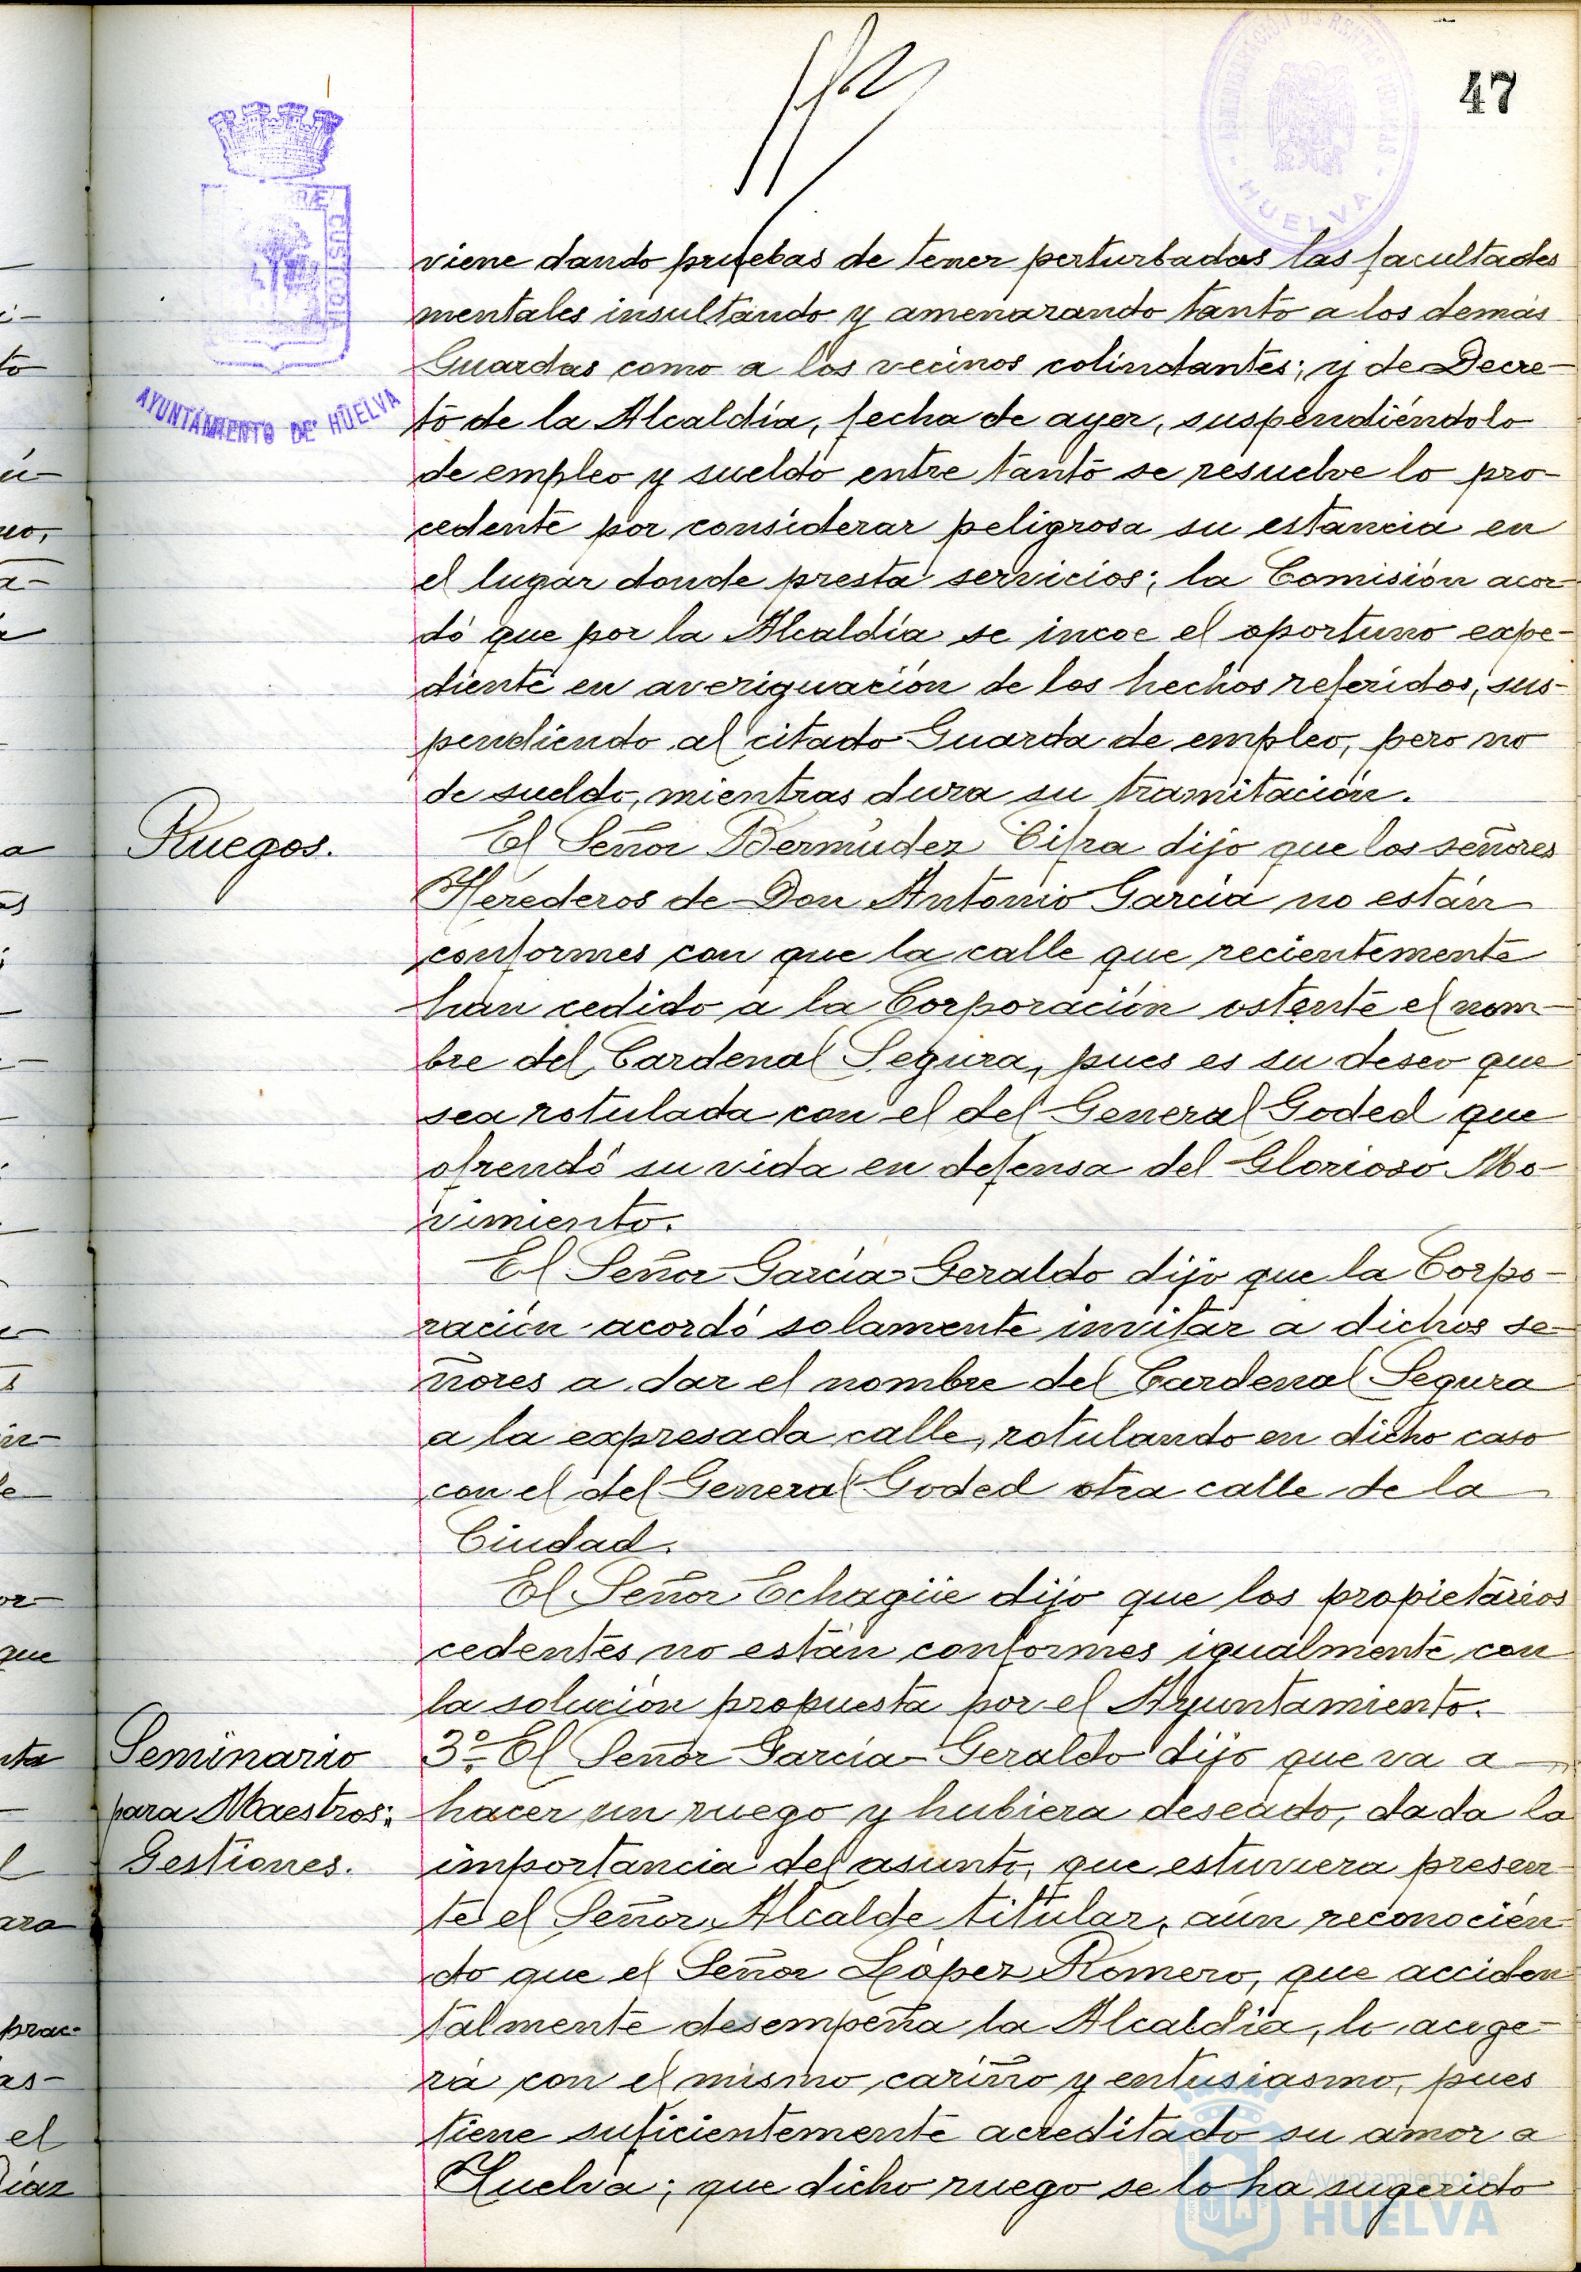 47
ADMINISTRACIÓN DE RENTAS PÚBLICAS
- HUELVA -
CUSTODIA
AYUNTAMIENTO DE HUELVA
viene dando pruebas de tener perturbadas las facultades
mentales insultando y amenazando tanto a los demás
Guardas como a los vecinos colindantes; y de Decre-
to de la Alcaldía, fecha de ayer, suspendiéndolo
de empleo y sueldo entre tanto se resuelve lo pro-
cedente por considerar peligrosa su estancia en
el lugar donde presta servicios; la Comisión acor-
dó que por la Alcaldía se incoe el oportuno expe-
diente en averiguación de los hechos referidos, sus-
pendiendo al citado Guarda de empleo, pero no
de sueldo, mientras dura su tramitación.
Ruegos.
El Señor Bermúdez Cifra dijo que los señores
Herederos de Don Antonio García no están
conformes con que la calle que recientemente
han cedido a la Corporación ostente el nom-
bre del Cardenal Segura, pues es su deseo que
sea rotulada con el del General Goded que
ofrendó su vida en defensa del Glorioso Mo-
vimiento.
El Señor García-Geraldo dijo que la Corpo-
ración acordó solamente invitar a dichos se-
ñores a dar el nombre del Cardenal Segura
a la expresada calle, rotulando en dicho caso
con el del General Goded otra calle de la
Ciudad.
El Señor Echagüe dijo que los propietarios
cedentes no están conformes igualmente con
la solución propuesta por el Ayuntamiento.
Seminario
para Maestros:
Gestiones.
3º- El Señor García-Geraldo dijo que va a
hacer un ruego y hubiera deseado, dada la
importancia del asunto, que estuviera presen-
te el Señor Alcalde titular, aún reconocien-
do que el Señor López Romero, que acciden-
talmente desempeña la Alcaldía, lo acoge-
rá con el mismo cariño y entusiasmo, pues
tiene suficientemente acreditado su amor a
Huelva; que dicho ruego se lo ha sugerido
Ayuntamiento de
HUELVA